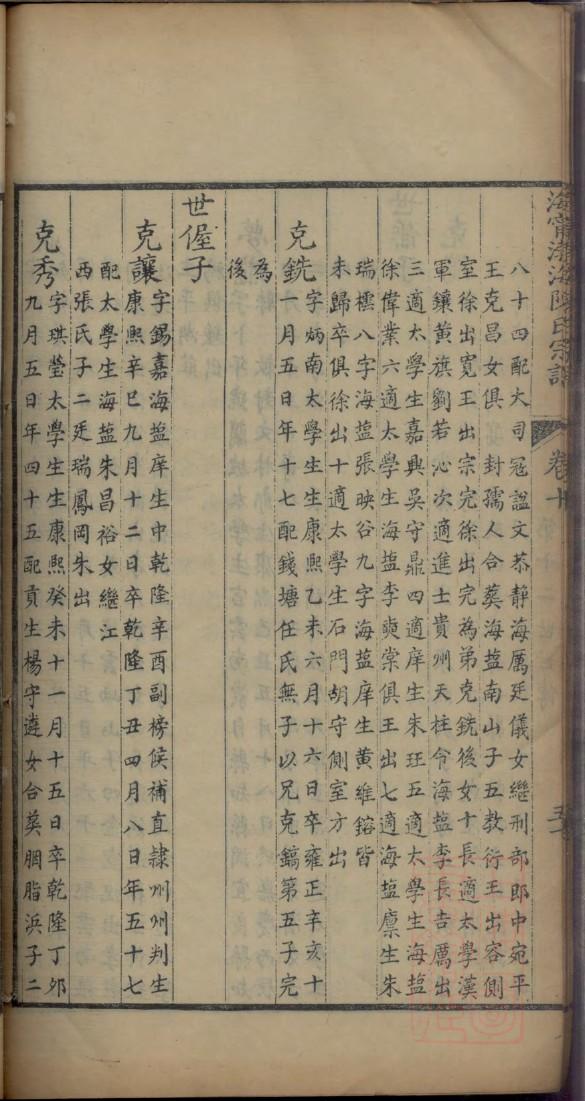 海寧渤海陳氏宗譜
卷十
八十四配大司冠諡文恭静海厲廷儀女繼刑部郎中宛平
王克昌女俱 封孺人合葬海盐南山子五敎衍王出容側
室徐出寬王出宗完徐出完為弟克銑後女十長適太學漢
軍鑲黃旗劉若沁次適進士貴州天柱令海盐李長吉厲出
三適太學生嘉興吳守鼎四適庠生朱珏五適太學生海盐
徐偉業六適太學生海盐李奭棠俱王出七適海盐廪生朱
瑞櫄八字海盐張映谷九字海盐庠生黃維鎔皆
未歸卒俱徐出十適太學生石門胡守側室方出
克銑字炳南太學生生康熙乙未六月十六日卒雍正辛亥十
一月五日年十七配錢塘任氏無子以兄克鎬第五子完
為
後
世偓子
克讓字錫嘉海盐庠生中乾隆辛酉副榜侯補直隸州州判生
康熙辛巳九月十二日卒乾隆丁丑四月八日年五十七
配太學生海盐朱昌裕女繼江
西張氏子二廷瑞鳳岡朱出
克秀字琪瑩太學生生康熙癸未十一月十五日卒乾隆丁卯
九月五日年四十五配貢生楊守遴女合葬胭脂浜子二